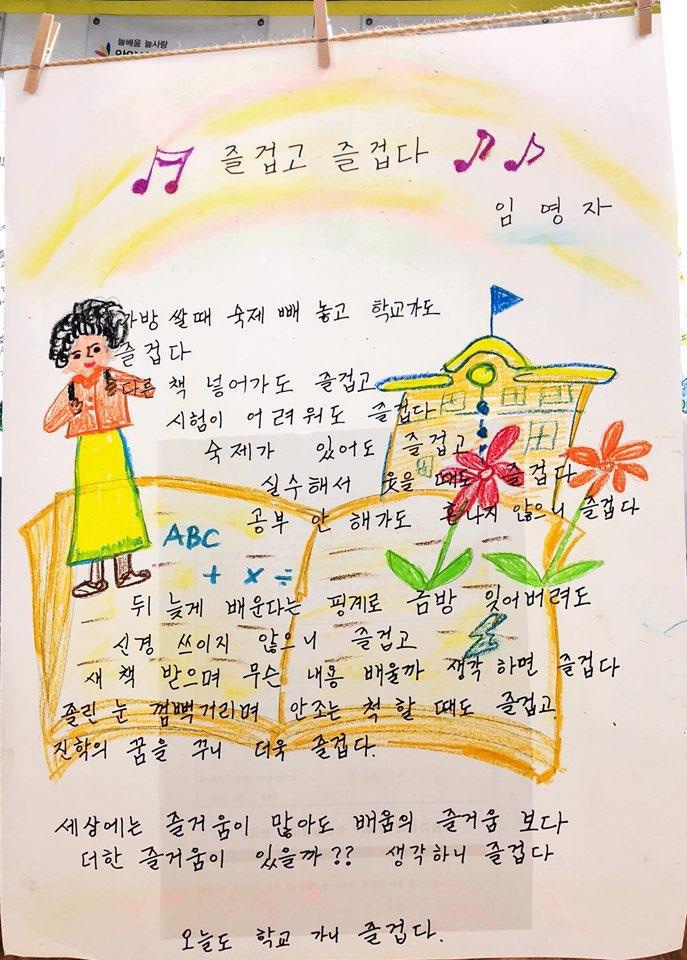 늘배움 늘사랑
즐겁고 즐겁다
임 영 자
가방 쌀때 숙제 빼 놓고 학교가도
즐겁다
다른 책 넣어가도 즐겁고
시험이 어려워도 즐겁다
숙제가 있어도 즐겁고
실수해서 웃을 때도 즐겁다
공부 안 해가도 혼나지 않으니 즐겁다
ABC
+ × ÷
뒤 늦게 배운다는 핑계로 금방 잊어버려도
신경 쓰이지 않으니 즐겁고
새 책 받으며 무슨 내용 배울까 생각 하면 즐겁다
졸린 눈 껌뻑거리며 안조는 척 할 때도 즐겁고
진학의 꿈을 꾸니 더욱 즐겁다.
세상에는 즐거움이 많아도 배움의 즐거움 보다
더한 즐거움이 있을까?? 생각하니 즐겁다
오늘도 학교 가니 즐겁다.